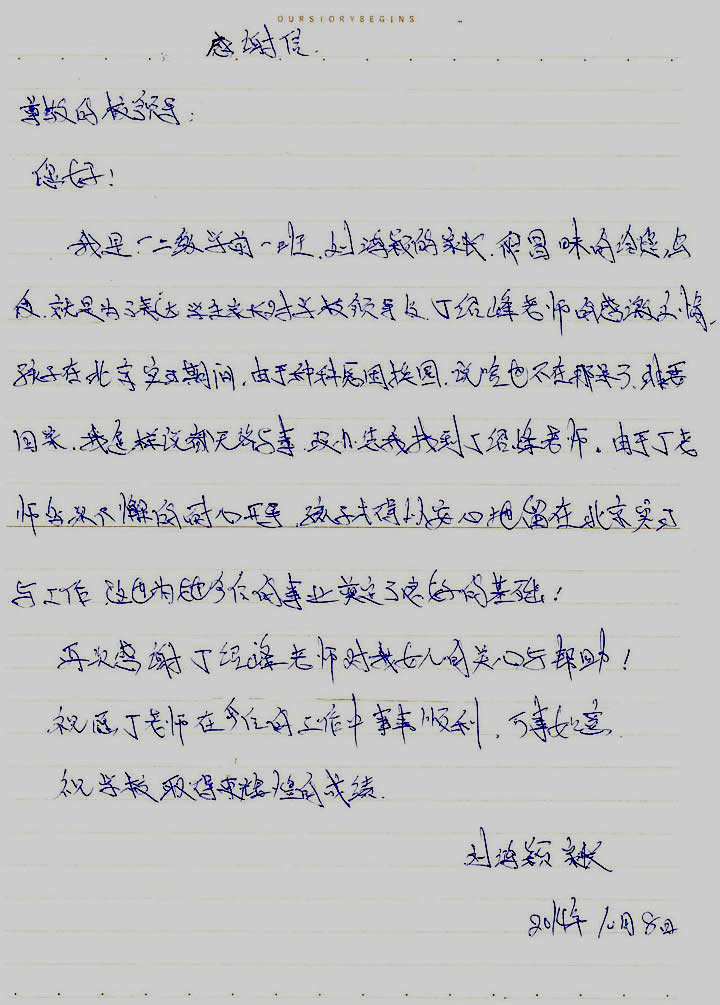 OURSTORYBEGINS
感谢信
尊敬的校领导:
您好!
我是一二级学前一班,刘海颖的家长,很冒昧的给您去
信,就是为了表达学生家长对学校领导及丁经峰老师的感激之情,
孩子在北京实习期间,由于种种原因,说啥也不在那呆了,非要
回家,我怎样说都无济于事,我找到丁经峰老师,由于丁老
师坚持不懈的耐心开导,孩子才得以安心地留在北京实习
与工作,这也为她今后的事业奠定了良好的基础!
再次感谢丁经峰老师对我女儿的关心与帮助!
祝愿丁老师在今后的工作中事事顺利,万事如意.
祝学校取得更辉煌的成绩.
刘海颖家长
2014年 月8日